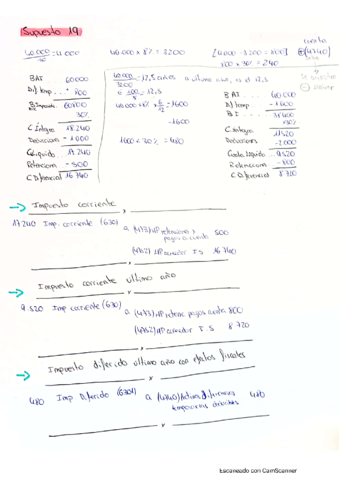 Supuesto 19
40.000 x 8% = 3200
[4000 - 3200 = 800]
cuota
800 x 30% = 240
BAI 60000
D/temp... + 800
B Imponib. 60800
30%
C Íntegra 18.240
Deducción - 1.000
C Líquida 17.240
Retencion - 500
C Diferencial 16.740
40.000 x 8% x 6/12 = 1600
- 1600
1600 x 30% = 480
BAI 40.000
D/temp - 1600
B I. 38400
30%
C Íntegra 11.520
Deducciones - 2.000
Cuota Líquida 9.520
Retencion - 800
C Diferencial 8.720
→ Impuesto corriente
x
17.240 Imp. corriente (6300)
a (473) HP retenciones y pagos a cuenta 500
(4752) HP acreedor I.S 16.740
x
→ Impuesto corriente último año
x
9.520 Imp corriente (6300)
a (473) HP retenc pagos cuenta 800
(4752) HP acreedor I.S 8.720
x
→ Impuesto diferido último año con efectos fiscales
x
480 Imp Diferido (6301) a (4740) Activo diferencias temporarias deducibles 480
x
Escaneado con CamScanner